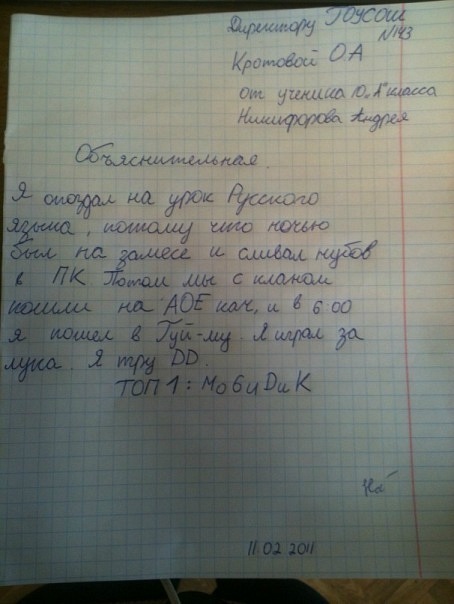 Директору ГОУСОШ
№143
Кротовой О А
от ученика 10 „А" класса
Никифорова Андрея
Объяснительная.
Я опоздал на урок Русского
языка, потому что ночью
был на замесе и сливал нубов
в ПК. Потом мы с кланом
пошли на АОЕ кач, и в 6 00
я пошел в Гуй-му. Я играл за
лука. Я тру DD.
ТОП 1 : МоБиDиК
11.02 2011